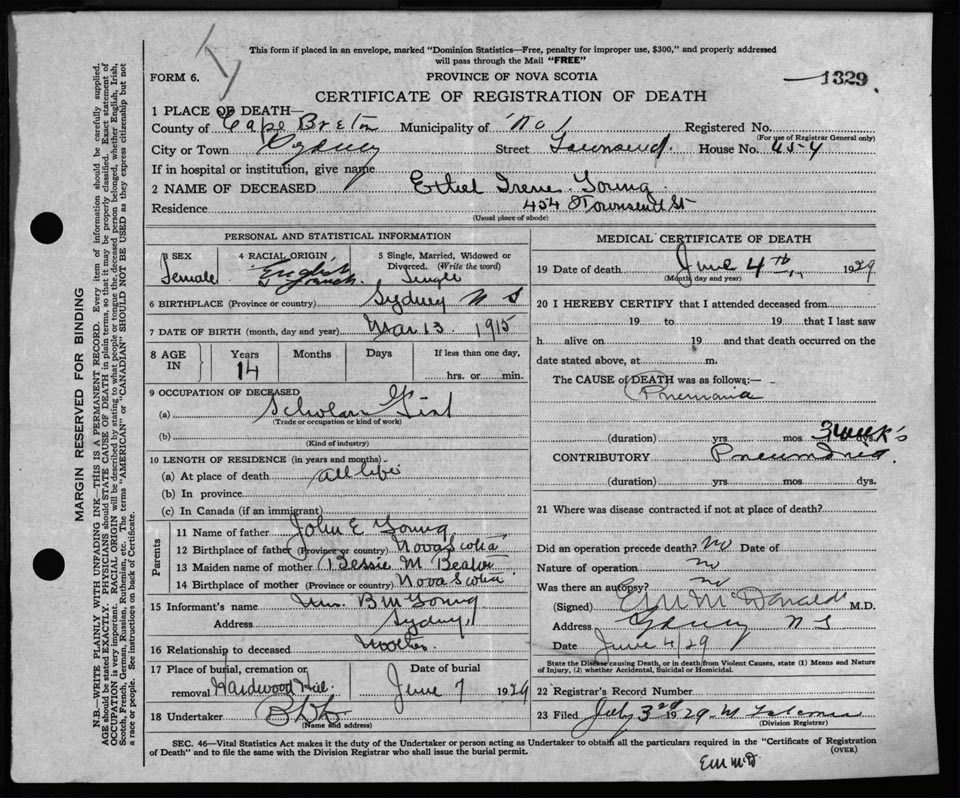 This form if placed in an envelope, marked "Dominion Statistics—Free, penalty for improper use, $300," and properly addressed
will pass through the Mail "FREE"
FORM 6.
PROVINCE OF NOVA SCOTIA
1329
CERTIFICATE OF REGISTRATION OF DEATH
1 PLACE OF DEATH—
County of Cape Breton Municipality of No 1 Registered No.
(For use of Registrar General only)
City or Town Sydney Street Townsend House No. 454
If in hospital or institution, give name
2 NAME OF DECEASED Ethel Irene Young
Residence 454 Townsend St
(Usual place of abode)
PERSONAL AND STATISTICAL INFORMATION
3 SEX
Female
4 RACIAL ORIGIN
English
& French
5 Single, Married, Widowed or
Divorced. (Write the word)
Single
6 BIRTHPLACE (Province or country) Sydney N S
7 DATE OF BIRTH (month, day and year) Mar 13 1915
8 AGE IN
Years
14
Months
Days
If less than one day,
hrs. or min.
9 OCCUPATION OF DECEASED
(a) Scholar Girl
(Trade or occupation or kind of work)
(b)
(Kind of industry)
10 LENGTH OF RESIDENCE (in years and months)
(a) At place of death all life
(b) In province
(c) In Canada (if an immigrant)
Parents
11 Name of father John E Young
12 Birthplace of father (Province or country) Nova Scotia
13 Maiden name of mother Bessie M
14 Birthplace of mother (Province or country) Nova Scotia
15 Informant's name Mrs. B M Young
Address Sydney
16 Relationship to deceased Mother
17 Place of burial, cremation or
removal Hardwood Hill
Date of burial
June 7 1929
18 Undertaker
(Name and address)
MEDICAL CERTIFICATE OF DEATH
19 Date of death June 4th 1929
(Month, day and year)
20 I HEREBY CERTIFY that I attended deceased from
19 to 19 that I last saw
h alive on 19 and that death occurred on the
date stated above, at m.
The CAUSE of DEATH was as follows:—
Pnemania
(duration) yrs mos 3 weeks dys.
CONTRIBUTORY
(duration) yrs. mos. dys.
21 Where was disease contracted if not at place of death?
Did an operation precede death? No Date of
Nature of operation no
Was there an autopsy? no
(Signed) E M McDonald M.D.
Address Sydney N S
Date June 4/29
State the Disease causing Death, or in death from Violent Causes, state (1) Means and Nature
of Injury, (2) whether Accidental, Suicidal or Homicidal.
22 Registrar's Record Number
23 Filed July 3rd 1929
(Division Registrar)
SEC. 46—Vital Statistics Act makes it the duty of the Undertaker or person acting as Undertaker to obtain all the particulars required in the "Certificate of Registration
of Death" and to file the same with the Division Registrar who shall issue the burial permit.
(OVER)
EM McD
MARGIN RESERVED FOR BINDING
N.B.—WRITE PLAINLY WITH UNFADING INK—THIS IS A PERMANENT RECORD. Every item of information should be carefully supplied.
AGE should be stated EXACTLY. PHYSICIANS should STATE CAUSE OF DEATH in plain terms, so that it may be properly classified. Exact statement of
OCCUPATION is very important. RACIAL ORIGIN will be described by stating to what people or tongue the deceased person belonged, whether English, Irish,
Scotch, French, German, Russian, Ruthenian, etc. The terms "AMERICAN" or "CANADIAN" SHOULD NOT BE USED as they express citizenship but not
a race or people. See instructions on back of Certificate.